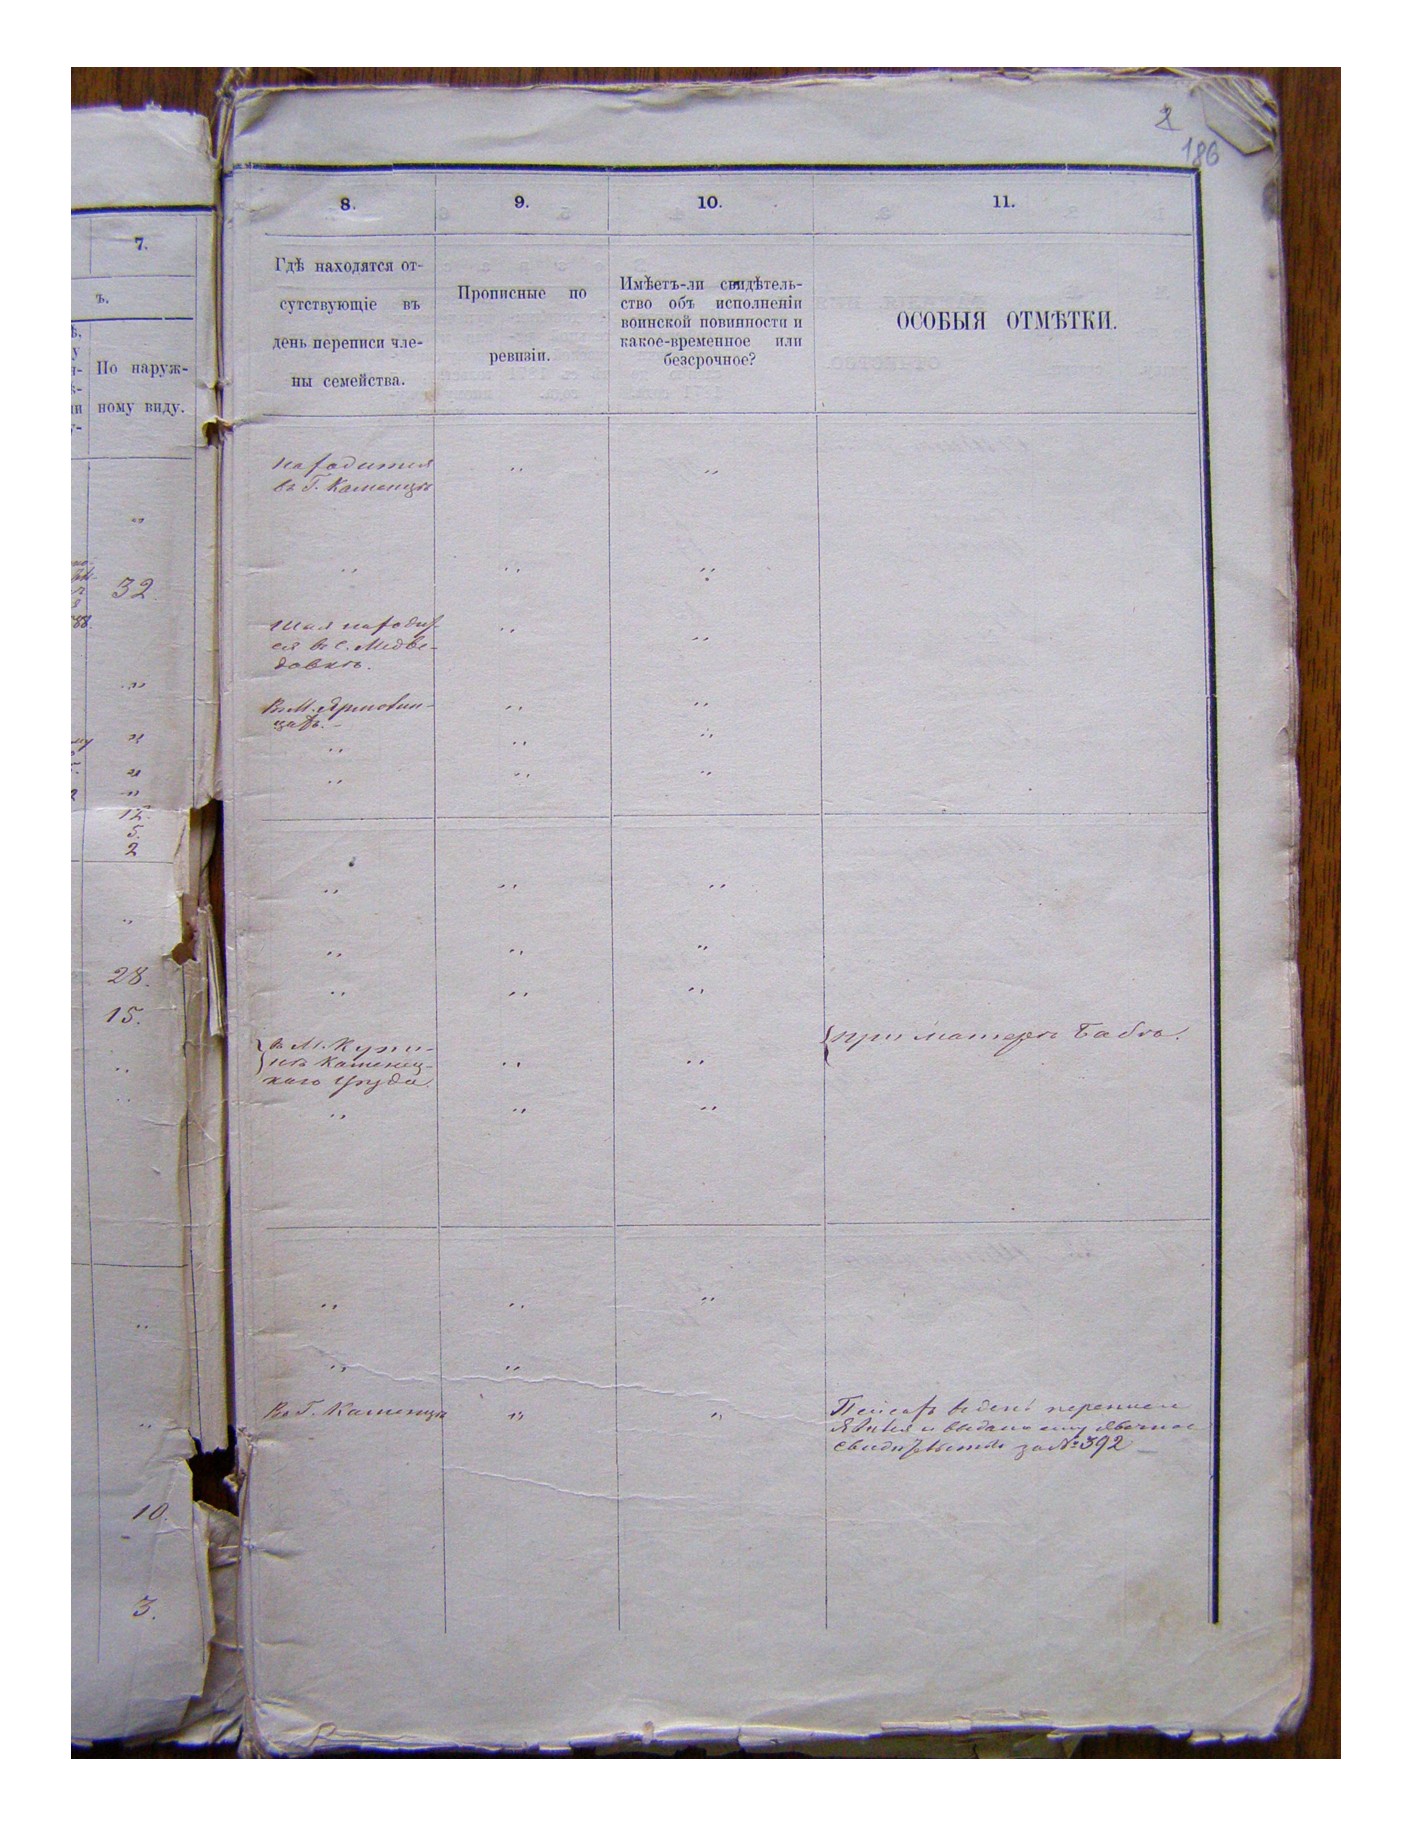 2
186
7.
ъ.
По наруж-
ному виду.
32.
88.
12.
5.
2
28.
15.
10.
3.
8.
9.
10.
11.
Гдѣ находятся от-
сутствующіе въ
день переписи чле-
ны семейства.
Прописные по
ревизіи.
Имѣетъ-ли свидѣтель-
ство объ исполненіи
воинской повинности и
какое-временное или
безсрочное?
ОСОБЫЯ ОТМѢТКИ.
находится
въ Г. Каменцѣ
Шая находит
ся въ с. Медве-
довкѣ.
Въ М. Ярмолин-
цахъ.
въ М. Купи-
нѣ Каменец-
каго Уѣзда.
при матерѣ Бабѣ.
Въ Г. Каменцѣ
въ день переписи
явился и выдано ему явочное
свидѣтельство за № 392